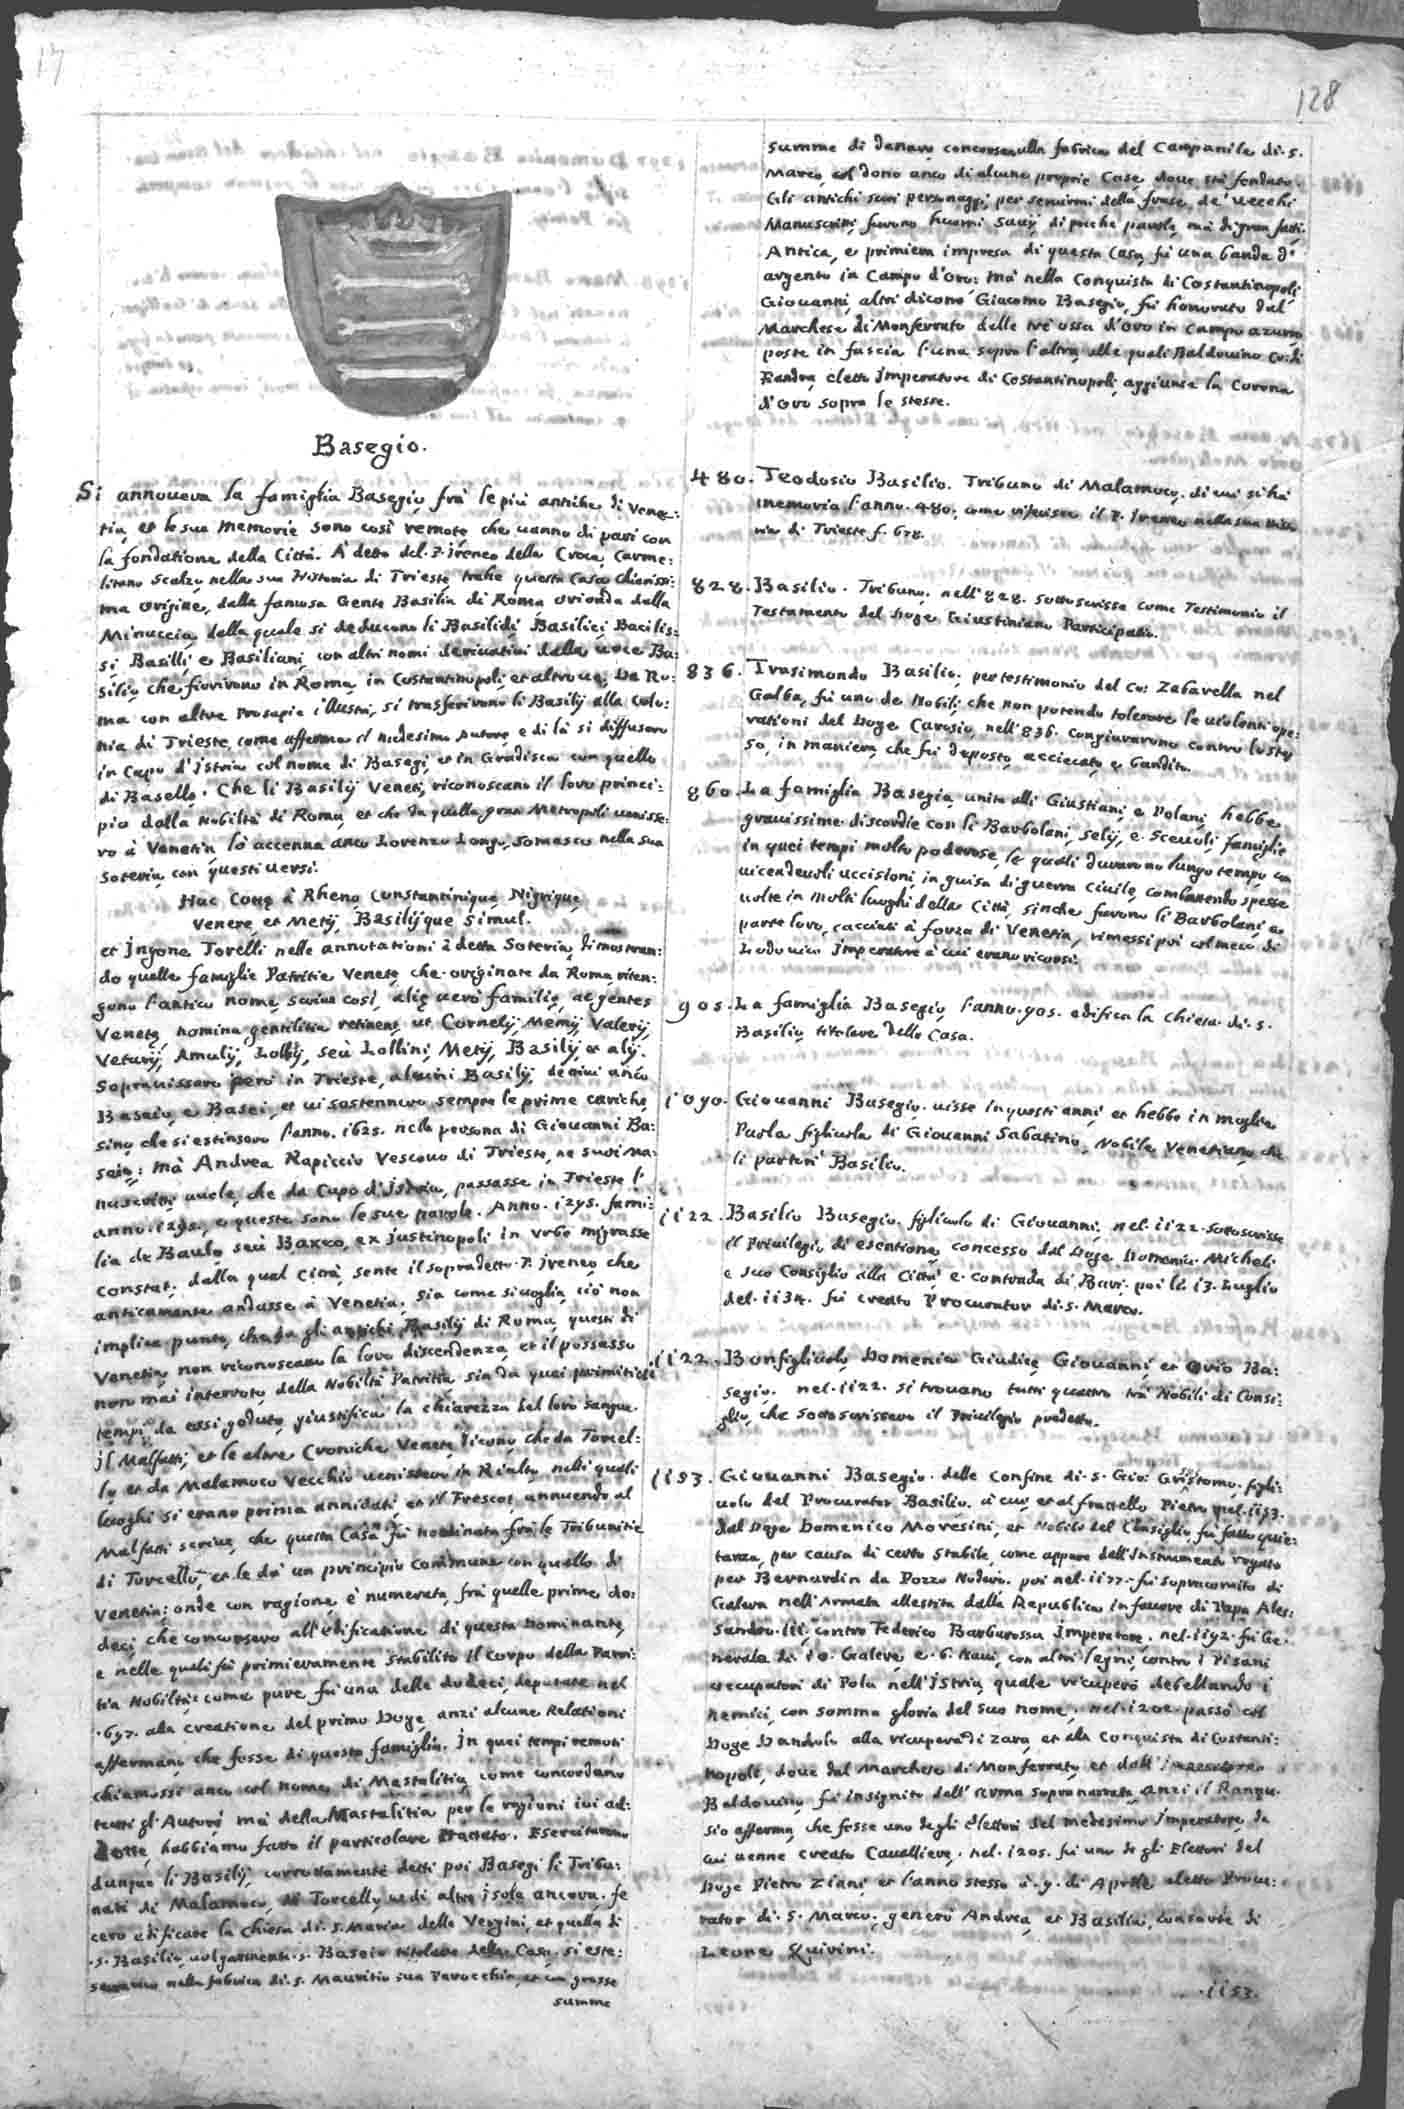 128
Basegio.
Si annouera la famiglia Basegio frà le più antiche di Vene-
tia, et le sue memorie sono così remote, che uanno di pari con
la fondatione della Città. A detto del P. Ireneo della Croce, Carme-
litano Scalzo nella sua Historia di Trieste trahe questa Casa chiarissi-
ma origine, dalla famosa Gente Basilia di Roma orionda dalla
Minuccia, dalla quale si deducono li Basilidi, Basilici, Bacilis-
si, Basilli, e Basiliani, con altri nomi deriuatiui dalla uoce Ba-
silio, che fiorirono in Roma, in Costantinopoli, et altroue. Da Ro-
ma con altre Prosapie illustri, si trasferirono li Basilij alla Colo-
nia di Trieste, come afferma il medesimo Autore e di là si diffusero
in Capo d'Istria col nome di Basegi, et in Gradisca con quello
di Basello. Che li Basilij Veneti, riconoscano il loro princi-
pio dalla Nobiltà di Roma, et che da quella gran Metropoli uenisse-
ro à Venetia, lò accenna anco Lorenzo Longo, Somasco nella sua
Soteria, con questi uersi.
Huc à Rheno Constantinique, Nigrique,
Venere, et Metij, Basilijque simul.
et Ingone Torelli nelle annotationi à detta Soteria, dimostran-
do quelle famiglie Patritie Venete, che originate da Roma, riten-
gono l'antico nome, scriue così, alię uerò familię, ac gentes
Venetę, nomina gentilitia retinent, ut Cornelij, Memij, Valerij,
Veturij, Amulij, Lollij, seù Lollini, Metij, Basilij, et alij.
Soprauissero però in Trieste, alcuni Basilij, detti anco
Baseio, e Basei, et ui sostennero sempre le prime cariche,
sino che si estinsero l'anno .1625. nella persona di Giovanni Ba-
seio: mà Andrea Rapiccio Vescouo di Trieste, ne suoi ma-
nuscritti uuole, che da Capo d'Istria, passasse in Trieste l'
anno .1295., e queste sono le sue parole. Anno .1295. fami-
lia de seù Baxeo, ex Justinopoli in urbe migrasse
constat, dalla qual Città, sente il sopradetto P. Ireneo, che
anticamente andasse à Venetia. Sia come si uoglia, ciò non
implica punto, che da gli antichi Basilij di Roma, questi di
Venetia, non riconoscano la loro discendenza, et il possesso
non mai interroto, della Nobiltà Patritia, sin da quei primitiui
tempi, da essi goduto, giustifica la chiarezza del loro sangue.
Il Malfatti, et le altre Croniche Venete, dicono, che da Torcel-
lo et da Malamoco Vecchio uenissero in Rialto, nelli quali
luoghi si erano prima annidati, et il Frescot, annuendo al
Malfatti scriue, che questa Casa fù nominata frà le Tribunitie
di Torcello, et le dà un principio commune con quello di
Venetia; onde con ragione, è numerata frà quelle prime do-
deci, che concorsero all'edificatione di questa Dominante,
e nelle quali fù primieramente stabilito il Corpo della Patri-
tia Nobiltà; come pure fù una delle dodeci, deputate nel
.697. alla creatione del primo Doge, anzi alcune Relationi
affermano che fosse di questa famiglia. In quei tempi remoti
chiamossi anco col nome di Mastalitia, come concordano
tutti gl'Autori, ma della Mastalitia per le ragioni iui ad-
dotte, habbiamo fatto il particolare Trattato. Esercitarono
dunque li Basilij, corrottamente detti poi Basegi li Tribu-
nati di Malamoco, di Torcello, et di altre isole ancora. fe
cero edificare la Chiesa di .S. Maria delle Vergini, et quella di
.S. Basilio, uolgarmente .S. Baseio titolare della Casa. si este-
sero nella fabrica di .S. Mauritio sua Parocchia, et con grosse
summe
summe di danaro concorse alla fabrica del Campanile di .S.
Marco, col dono anco di alcune proprie Case, doue stà fondato.
Gli antichi suoi personaggi, per seruirmi della frase, de' uecchi
Manuscritti, furono huomi sauij, di poche parole, mà di gran fatti.
Antica, et primiera impresa di questa Casa, fù una banda d'
argento in Campo d'oro: mà nella Conquista di Costantinopoli
Giouanni, altri dicono Giacomo Basegio, fù honorato dal
Marchese di Monferrato delle trè ossa d'oro in campo azurro
poste in fascia l'una sopra l'altra, alle quali Baldouino Co: di
Fiandra, eletto Imperatore di Costantinopoli, aggiunse la Corona
d'oro sopra le stesse.
480. Teodosio Basilio. Tribuno di Malamoco, di cui si hà
memoria l'anno .480., come riferisce il P. Ireneo nella sua Histo-
ria di Trieste f. 678.
828. Basilio. Tribuno, nell'828. sottoscrisse come Testimonio il
Testamento del Doge Giustiniano Participatio.
836. Trasimondo Basilio, per testimonio del Co: Zabarella nel
Galba, fù uno de Nobili, che non potendo tolerare le uiolenti ope-
rationi del Doge Carosio, nell'836. congiurarono contro lo stes-
so, in maniera, che fù deposto, acciecato, e bandito.
860. La famiglia Basegia, unita alli Giustiani, e Polani, hebbe
grauissime discordie con li Barbolani, Selij, e Sceuoli, famiglie
in quei tempi molto poderose, le quali durarono lungo tempo, con
uicendeuoli uccisioni, in guisa di guerra ciuile, combattendo spesse
uolte in molti luoghi della Città, sinche furono li Barbolani, e
parte loro, cacciati à forza di Venetia, rimessi poi col mezo di
Lodouico Imperatore à cui erano ricorsi.
905. La famiglia Basegio, l'anno .905. edifica la Chiesa di .S.
Basilio, titolare della Casa.
1090. Giouanni Basegio. uisse in questi anni, et hebbe in moglie
Paola figliuola di Giouanni Sabatino, Nobile Venetiano, che
li partorì Basilio.
1122. Basilio Basegio. figliuolo di Giouanni, nel .1122. sottoscrisse
il Priuilegio, di esentione, concesso dal Doge Domenico Micheli
e suo Consiglio alla Città, e contrada di Bari. poi li .13. Luglio
del .1134. fù creato Procurator di .S. Marco.
1122. Bonfigliuolo, Domenico Giudice, Giouanni, et Orio Ba-
segio. nel .1122. si trouano tutti quattro trà Nobili di Consi-
glio, che sottoscrissero il Priuilegio predetto.
1153. Giouanni Basegio. delle Confine di .S. Gio: Grisstomo. figli-
uolo del Procurator Basilio. à cui, et al fratello Pietro, nel .1153.
dal Doge Domenico Moresini, et Nobili del Consiglio, fù fatto quie-
tanza, per causa di certo stabile, come appare dell'Instrumento rogato
per Bernardin da Pozzo Nodaro. poi nel .1177. fù Sopracomito di
Galera nell'Armata allestita dalla Republica in fauore di Papa Ales-
sandro .III, contro Federico Barbarossa Imperatore. nel .1192. fù Ge-
nerale di .10. Galere, e .6. Naui, con altri legni, contro i Pisani
occupatori di Pola nell'Istria, quale ricuperò debellando i
nemici, con somma gloria del suo nome. nel .1202. passò col
Doge Dandolo alla ricupera di Zara, et alla Conquista di Costanti-
nopoli, doue dal Marchese di Monferrato, et dall'Imperatore
Baldouino, fù insignito dell'Arma sopranarrata, anzi il Ranpu-
sio afferma, che fosse uno degli Elettori del medesimo Imperatore, da
cui uenne creato Caualliere. nel .1205. fù uno de gli Elettori del
Doge Pietro Ziani, et l'anno stesso à .9. di Aprile, eletto Procu-
rator di .S. Marco; generò Andrea, et Basilia, consorte di
Leone Quirini.
.1153.